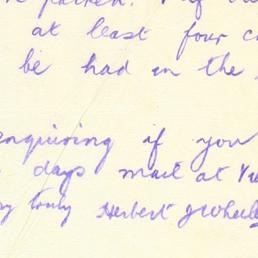 at least four
be had in the
enquiring if you
days mail at
truly Herbert J Wheele